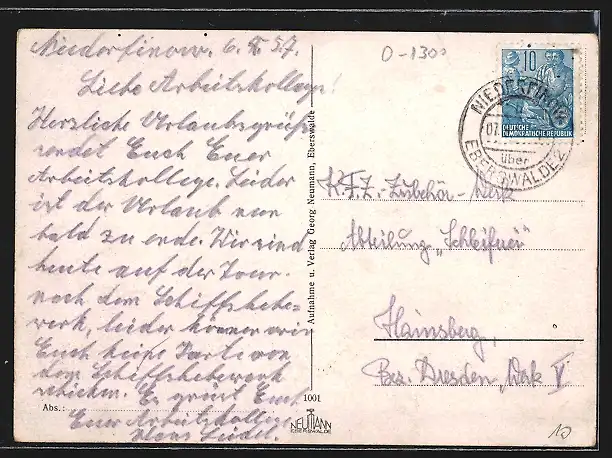 Niederfinow, 6. 8. 57.
Liebe Arbeitskollegen!
Herzliche Urlaubsgrüße
sendet Euch Euer
Arbeitskollege. Leider
ist der Urlaub nun
bald zu ende. Wir sind
heute auf der Tour
nach dem Schiffshebe-
werk, leider können wir
Euch keine Karte von
dem Schiffshebewerk
schicken. Es grüßt Euch
Euer Arbeitskollege
Hans
Abs.:
Aufnahme u. Verlag Georg Neumann, Eberswalde
1001
NEUMANN
EBERSWALDE
0-1300
10
DEUTSCHE
DEMOKRATISCHE REPUBLIK
NIEDERFINOW
07.
über
EBERSWALDE 2
K.F.Z.-Zubehör-Werk
Abteilung „Schleiferei"
Hainsberg,
Bez. Dresden, Werk V
10